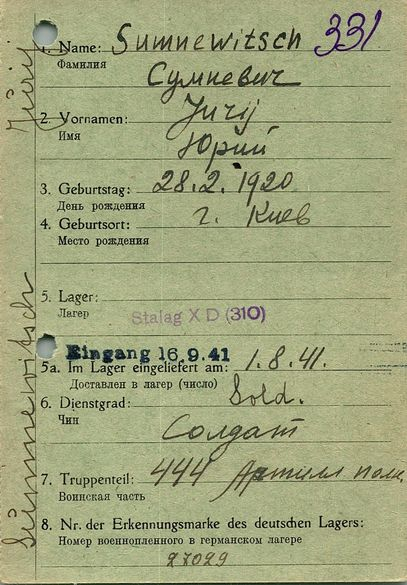 1. Name: Sumnewitsch 331
Фамилия Сумневич
2. Vornamen: Jurij
Имя Юрий
3. Geburtstag: 28.2. 1920
День рождения
4. Geburtsort: г. Киев
Место рождения
5. Lager:
Лагер Stalag X D (310)
Eingang 16.9.41
5a. Im Lager eingeliefert am: 1.8.41.
Доставлен в лагер (число)
6. Dienstgrad: Sold.
Чин Солдат
7. Truppenteil: 444 Артилл полк
Воинская часть
8. Nr. der Erkennungsmarke des deutschen Lagers:
Номер военнопленного в германском лагере
27029
Sümnewitsch Jurij